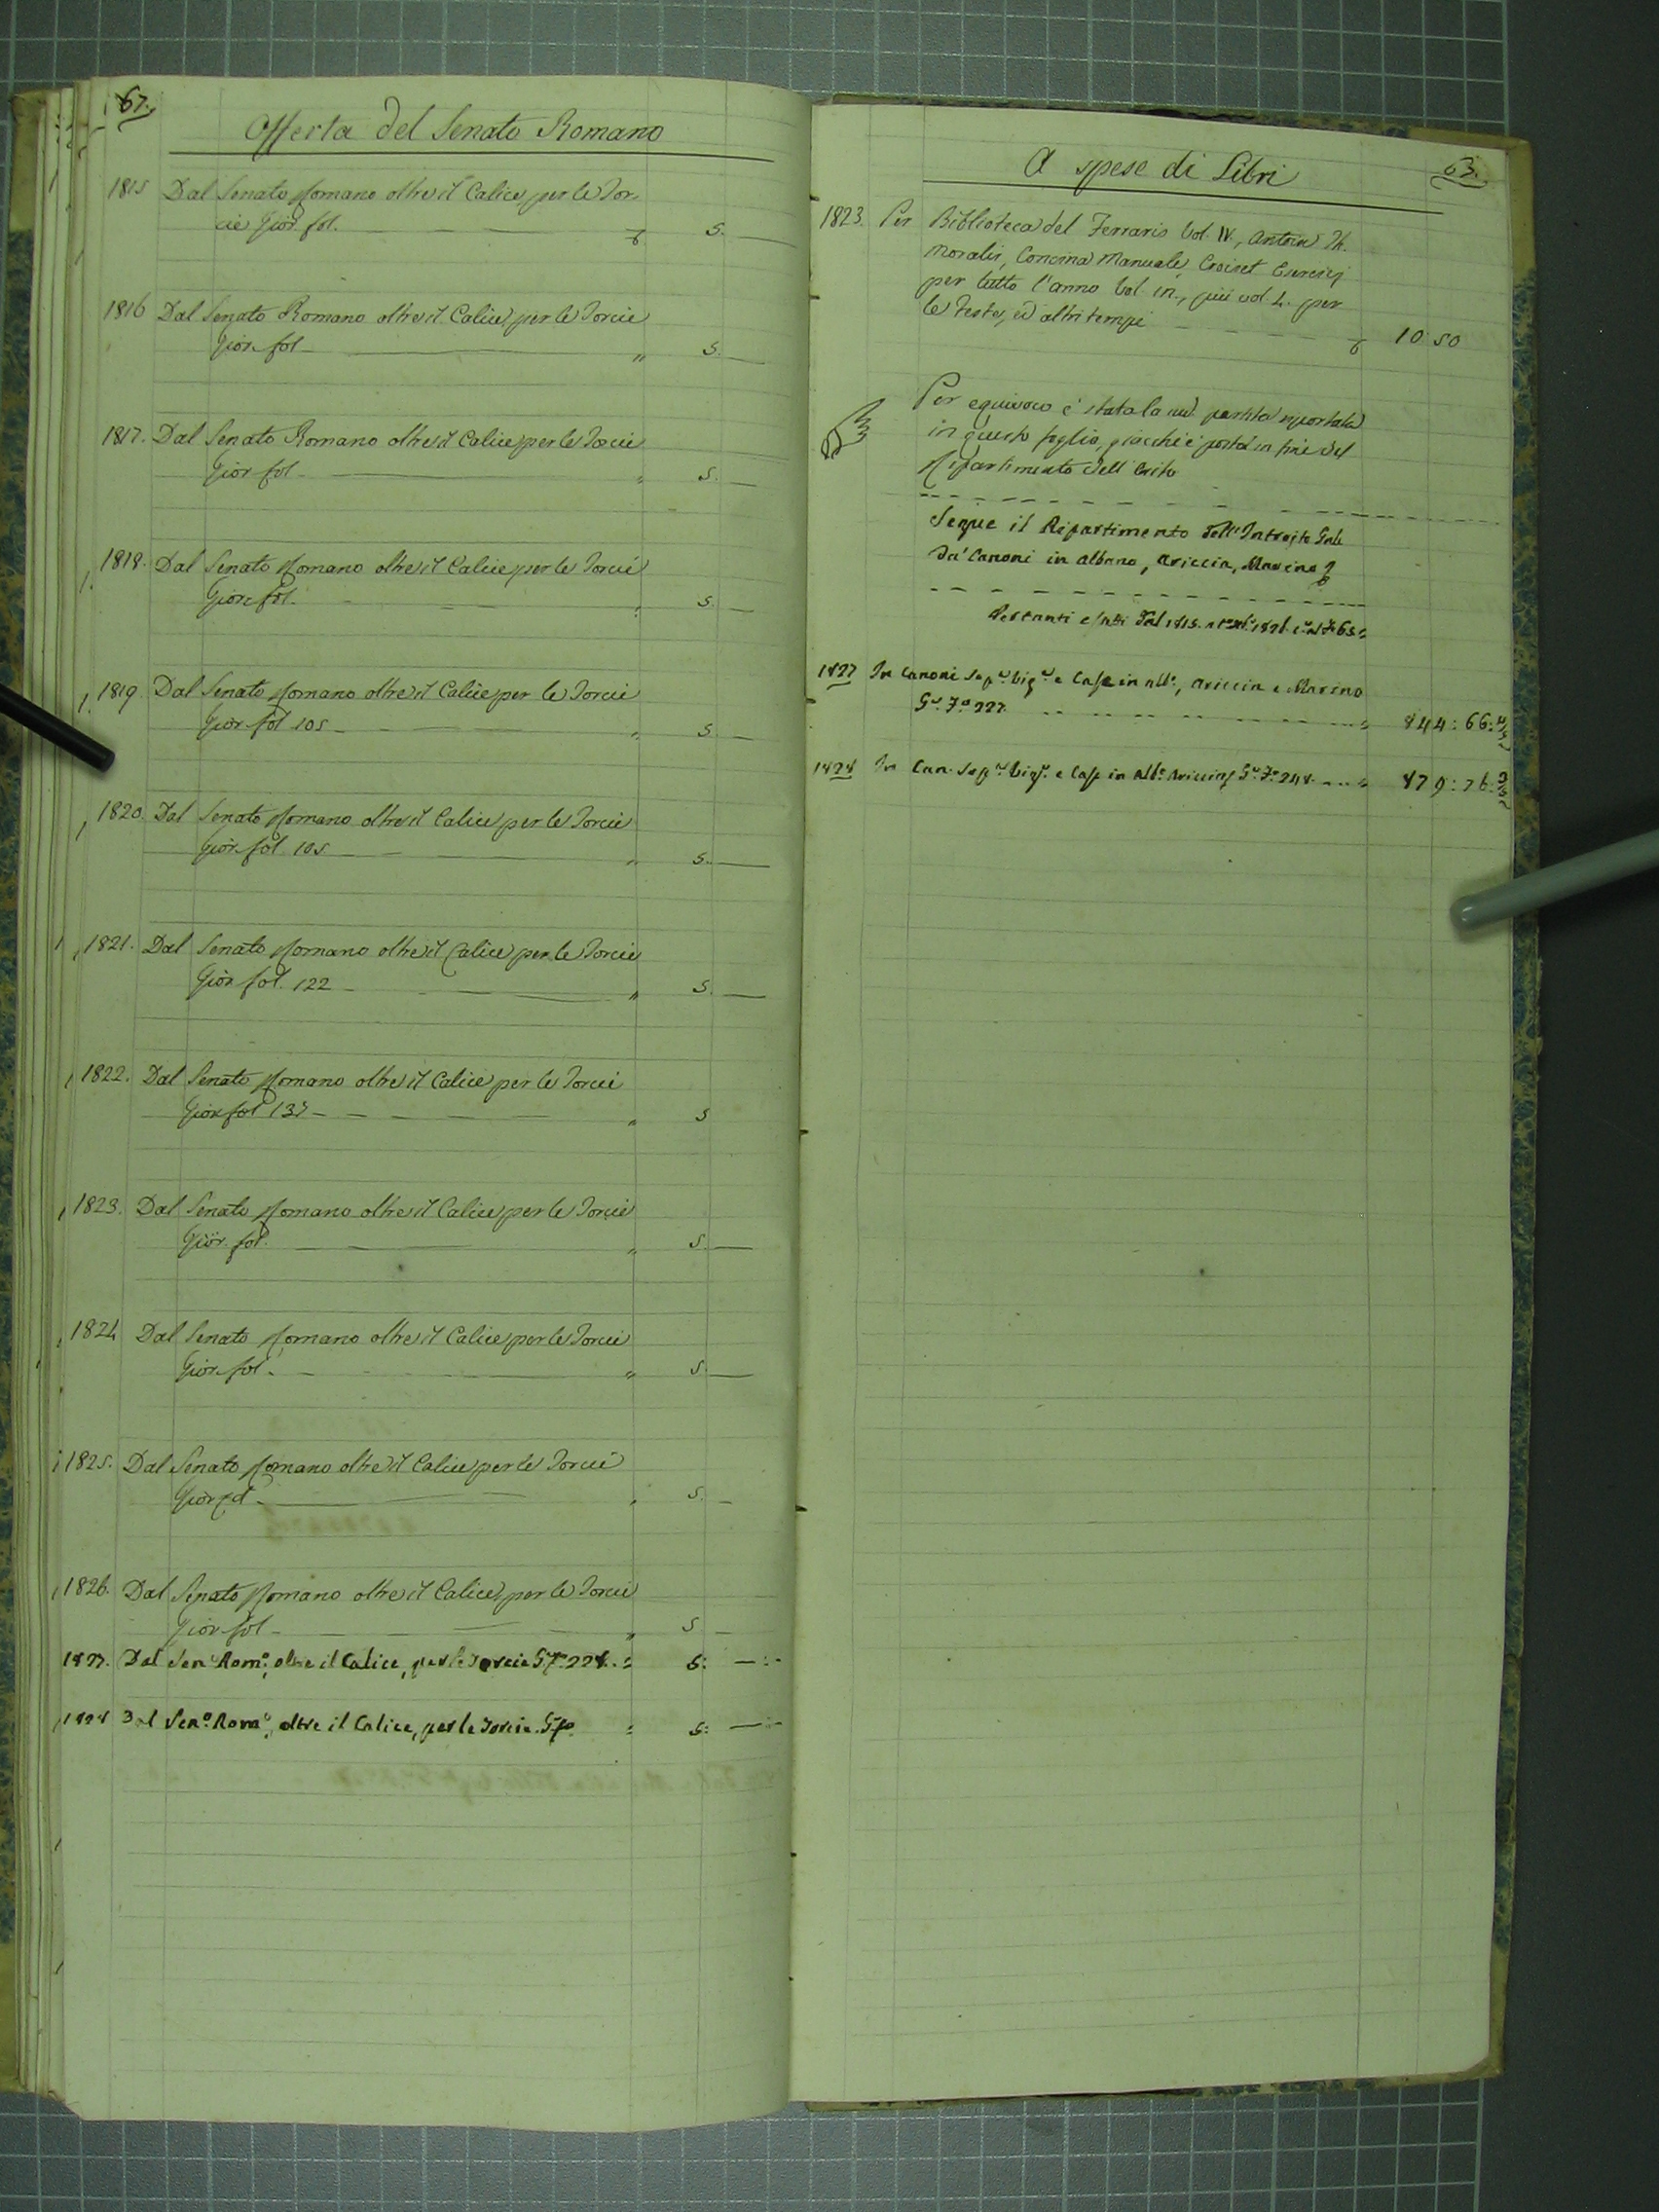 67.
Offerta del Senato Romano
1815 Dal Senato Romano oltre il Calice per le Tor,
cie Gior. fol. S.
1816 Dal Senato Romano oltre il Calice per le Torcie
Gior. fol " S.
1817. Dal Senato Romano oltre il Calice per le Torcie
Gior fol " S.
1818. Dal Senato Romano oltre il Calice per le Torcie
Gior. fol. " S.
1819. Dal Senato Romano oltre il Calice per le Torcie
Gior fol 105 " S.
1820. Dal Senato Romano oltre il Calice per le Torcie
Gior. fol 105 " S.
1821. Dal Senato Romano oltre il Calice per le Torcie
Gior fol. 122 " S.
1822. Dal Senato Romano oltre il Calice per le Torcie
Gior fol " S
1823. Dal Senato Romano oltre il Calice per le Torcie
Gior. fol. " S.
1824 Dal Senato Romano oltre il Calice per le Torcie
Gior. fol. " S.
1825. Dal Senato Romano oltre il Calice per le Torcie
Gior. " S.
1826. Dal Senato Romano oltre il Calice per le Torcie
Gior. fol " S
1827. Dal Sen.º Rom.º, oltre il Calice, per le Torcie 228. : 5: — : -
1828 Dal Sen.º Rom.º, oltre il Calice, per le Torcie. : 5: — : -
A spese di Libri
63.
1823. Per Biblioteca del Ferraris Vol. IV., Th.
Moralis, Concina Manuale, Croiset Esercizj
per tutto l'anno Vol. più vol. 4. per
le Feste, ed altri tempi 10 50
Per equivoco è stata la partita riportata
in questo foglio, giacchè è posta in fine del
Ripartimento dell'Esito
Segue il Ripartimento dell'Introito
da' Canoni in Albano, Ariccia, Marino
1827 In Canoni e Case in Alb.º, Ariccia e Marino
227. 844 : 66 :
1828 In Can. e Case in Alb.º Ariccia 248. 879 : 76 :